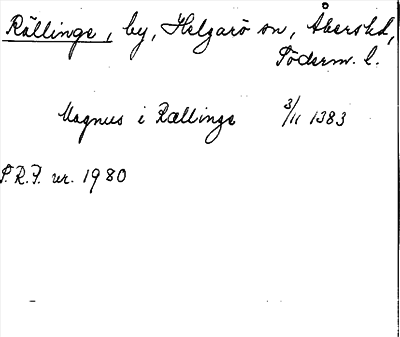 Rällinge, by, Helgarö sn, Åkersbd,
Söderm. l.
Magnus i Rællinge 3/11 1383
S.R.P. nr. 1980